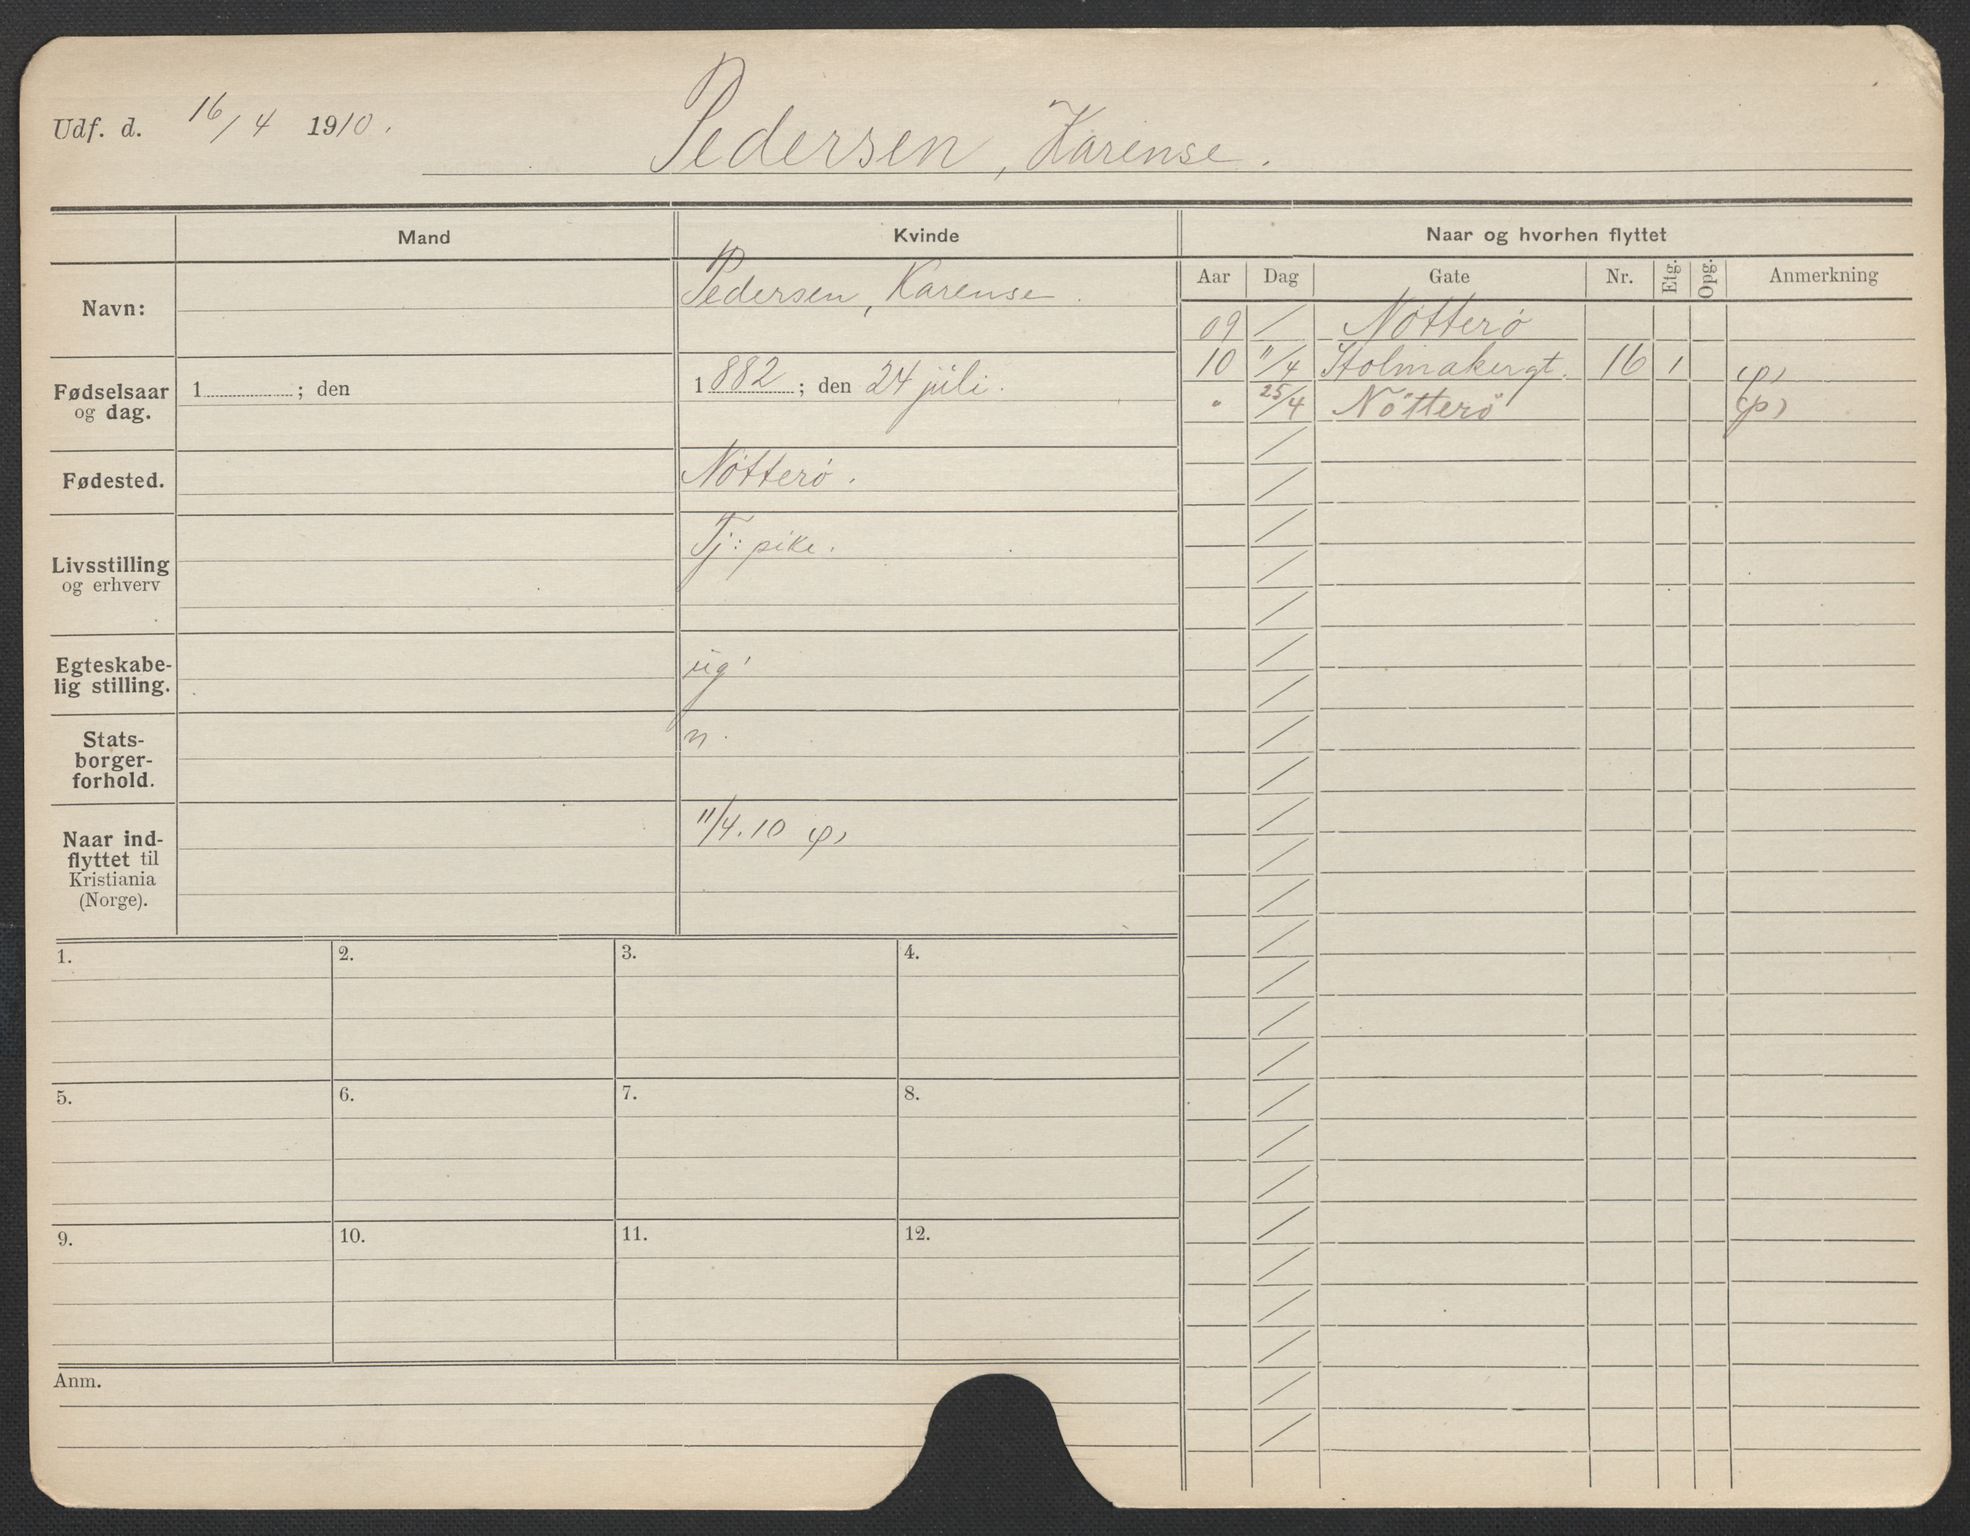 Udf. d. 16/4 1910.
Pedersen, Karense.
Mand
Kvinde
Naar og hvorhen flyttet
Aar Dag Gate Nr. Etg. Opg. Anmerkning
Navn:
Pedersen, Karense.
Fødselsaar
og dag.
1 ; den
1882 ; den 24 juli.
Fødested.
Nötterö.
Livsstilling
og erhverv
Tj: pike.
Egteskabe-
lig stilling.
ug
Stats-
borger-
forhold.
n.
Naar ind-
flyttet til
Kristiania
(Norge).
11/4.10 (p)
09 / Nötterø
10 11/4 Holmakergt. 16 1 (p)
" 25/4 Nötterö (p)
1. 2. 3. 4.
5. 6. 7. 8.
9. 10. 11. 12.
Anm.